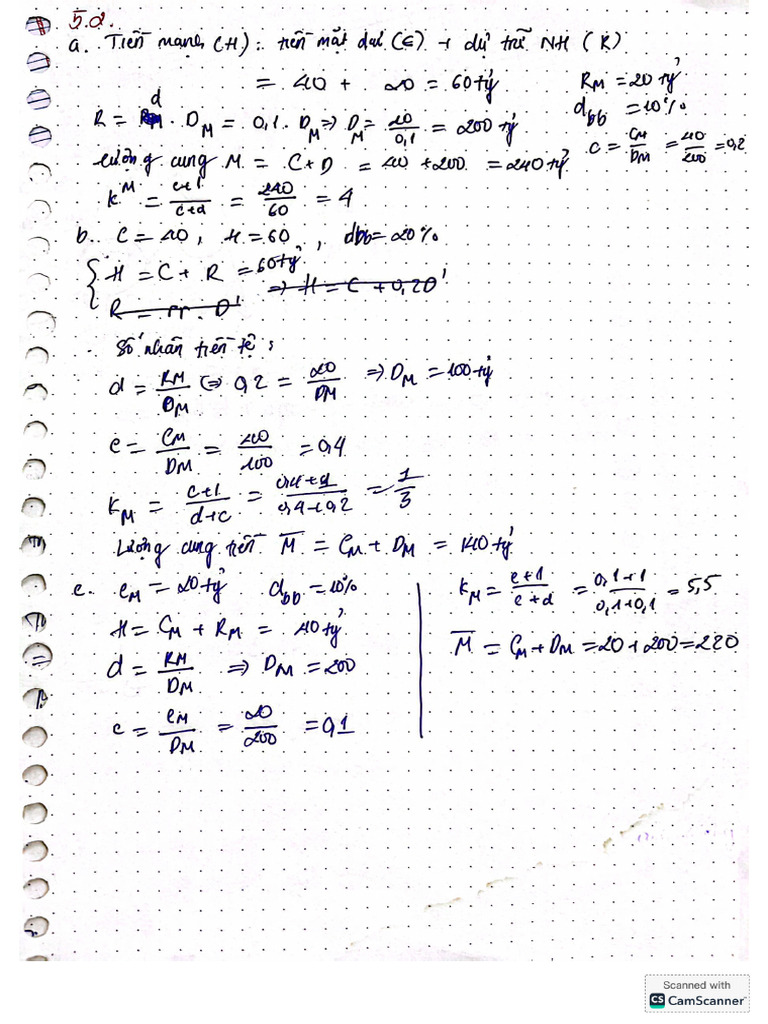 5.2.
a. Tiền mạnh (H): tiền mặt dư (C) + dự trữ NH (R)
= 40 + 20 = 60 tỷ
R_M = 20 tỷ
d_bb = 10%
R = d . D_M = 0,1 . D_M ⇒ D_M = 20/0,1 = 200 tỷ
c = C_M/D_M = 40/200 = 0,2
Lượng cung M = C + D = 40 + 200 = 240 tỷ
k^M = c+1/c+d = 240/60 = 4
b. C = 40, H = 60, d_bb = 20%
H = C + R = 60 tỷ
⇒ H = C + 0,2D
R = rr . D
Số nhân tiền tệ:
d = R_M/D_M ⇔ 0,2 = 20/D_M ⇒ D_M = 100 tỷ
c = C_M/D_M = 40/100 = 0,4
K_M = c+1/d+c = 0,4+1/0,4+0,2 = 7/3
Lượng cung tiền M̅ = C_M + D_M = 140 tỷ
c. C_M = 20 tỷ d_bb = 10%
H = C_M + R_M = 40 tỷ
d = R_M/D_M ⇒ D_M = 200
c = C_M/D_M = 20/200 = 0,1
K_M = c+1/c+d = 0,1+1/0,1+0,1 = 5,5
M̅ = C_M + D_M = 20 + 200 = 220
Scanned with
CS CamScanner